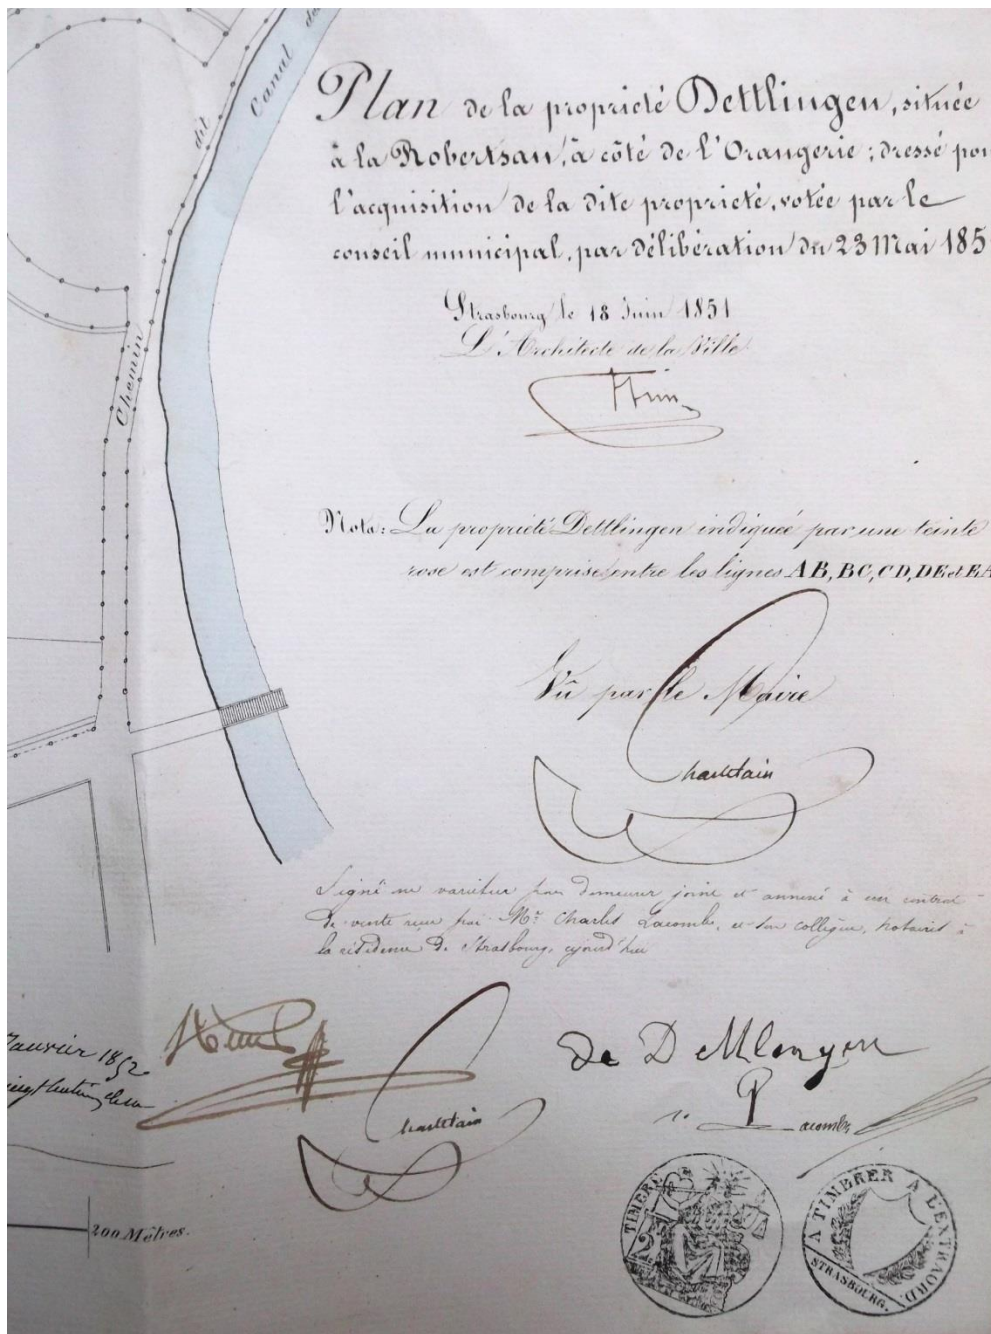 Canal de
dit
Chemin
Plan de la propriété Dettlingen, située
à la Robertsau, à côté de l'Orangerie; dressé pour
l'acquisition de la dite propriété, votée par le
conseil municipal, par délibération du 23 Mai 185
Strasbourg le 18 Juin 1851
L'Architecte de la Ville
Nota: La propriété Dettlingen indiquée par une teinte
rose est comprise entre les lignes AB, BC, CD, DE et EA
Vû par le Maire
Chastelain
Signé ne varietur pour demeurer joint et annexé à un contrat
de vente reçu par Mr. Charles Lacombe, et son collègue, notaires à
la résidence de Strasbourg, cejourd'hui
Janvier 1852
de Dettlingen
Chastelain
Lacombe
200 Mètres.
TIMBRE
A TIMBRER A L'EXTRAORD.
STRASBOURG.